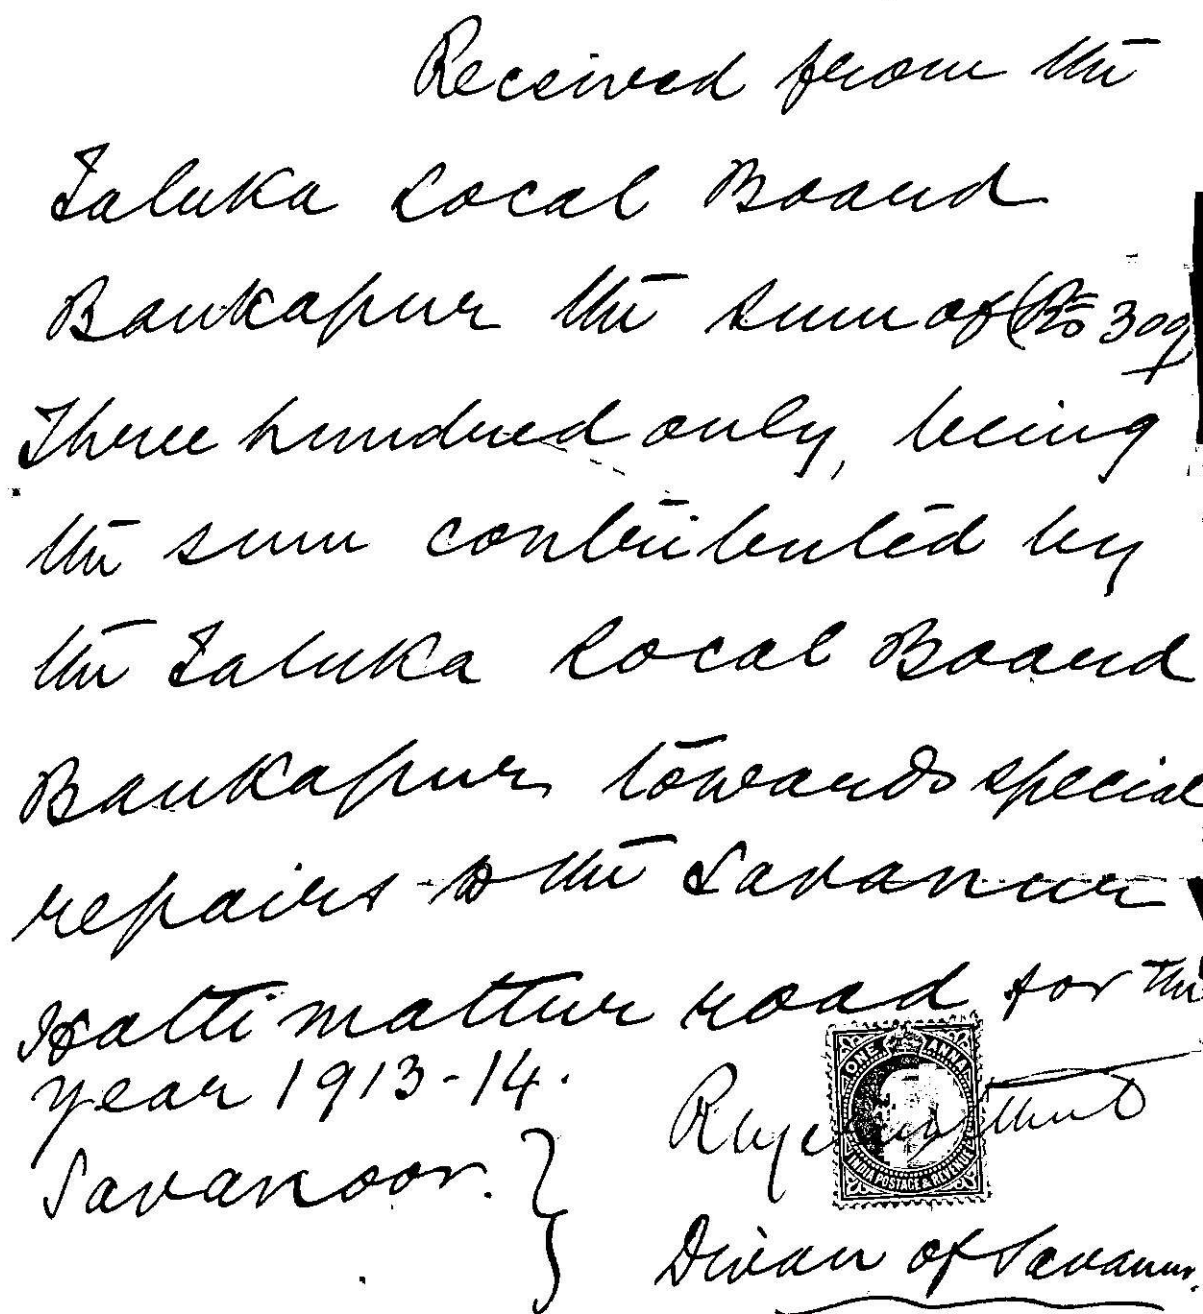 Received from the
Taluka Local Board
Bankapur the sum of (Rs 300)
Three hundred only, being
the sum contributed by
the Taluka Local Board
Bankapur towards special
repairs to the Savanur
Hattimattur road for the
year 1913-14.
Savanoor.
ONE ANNA
INDIA POSTAGE & REVENUE
Divan of Savanur.